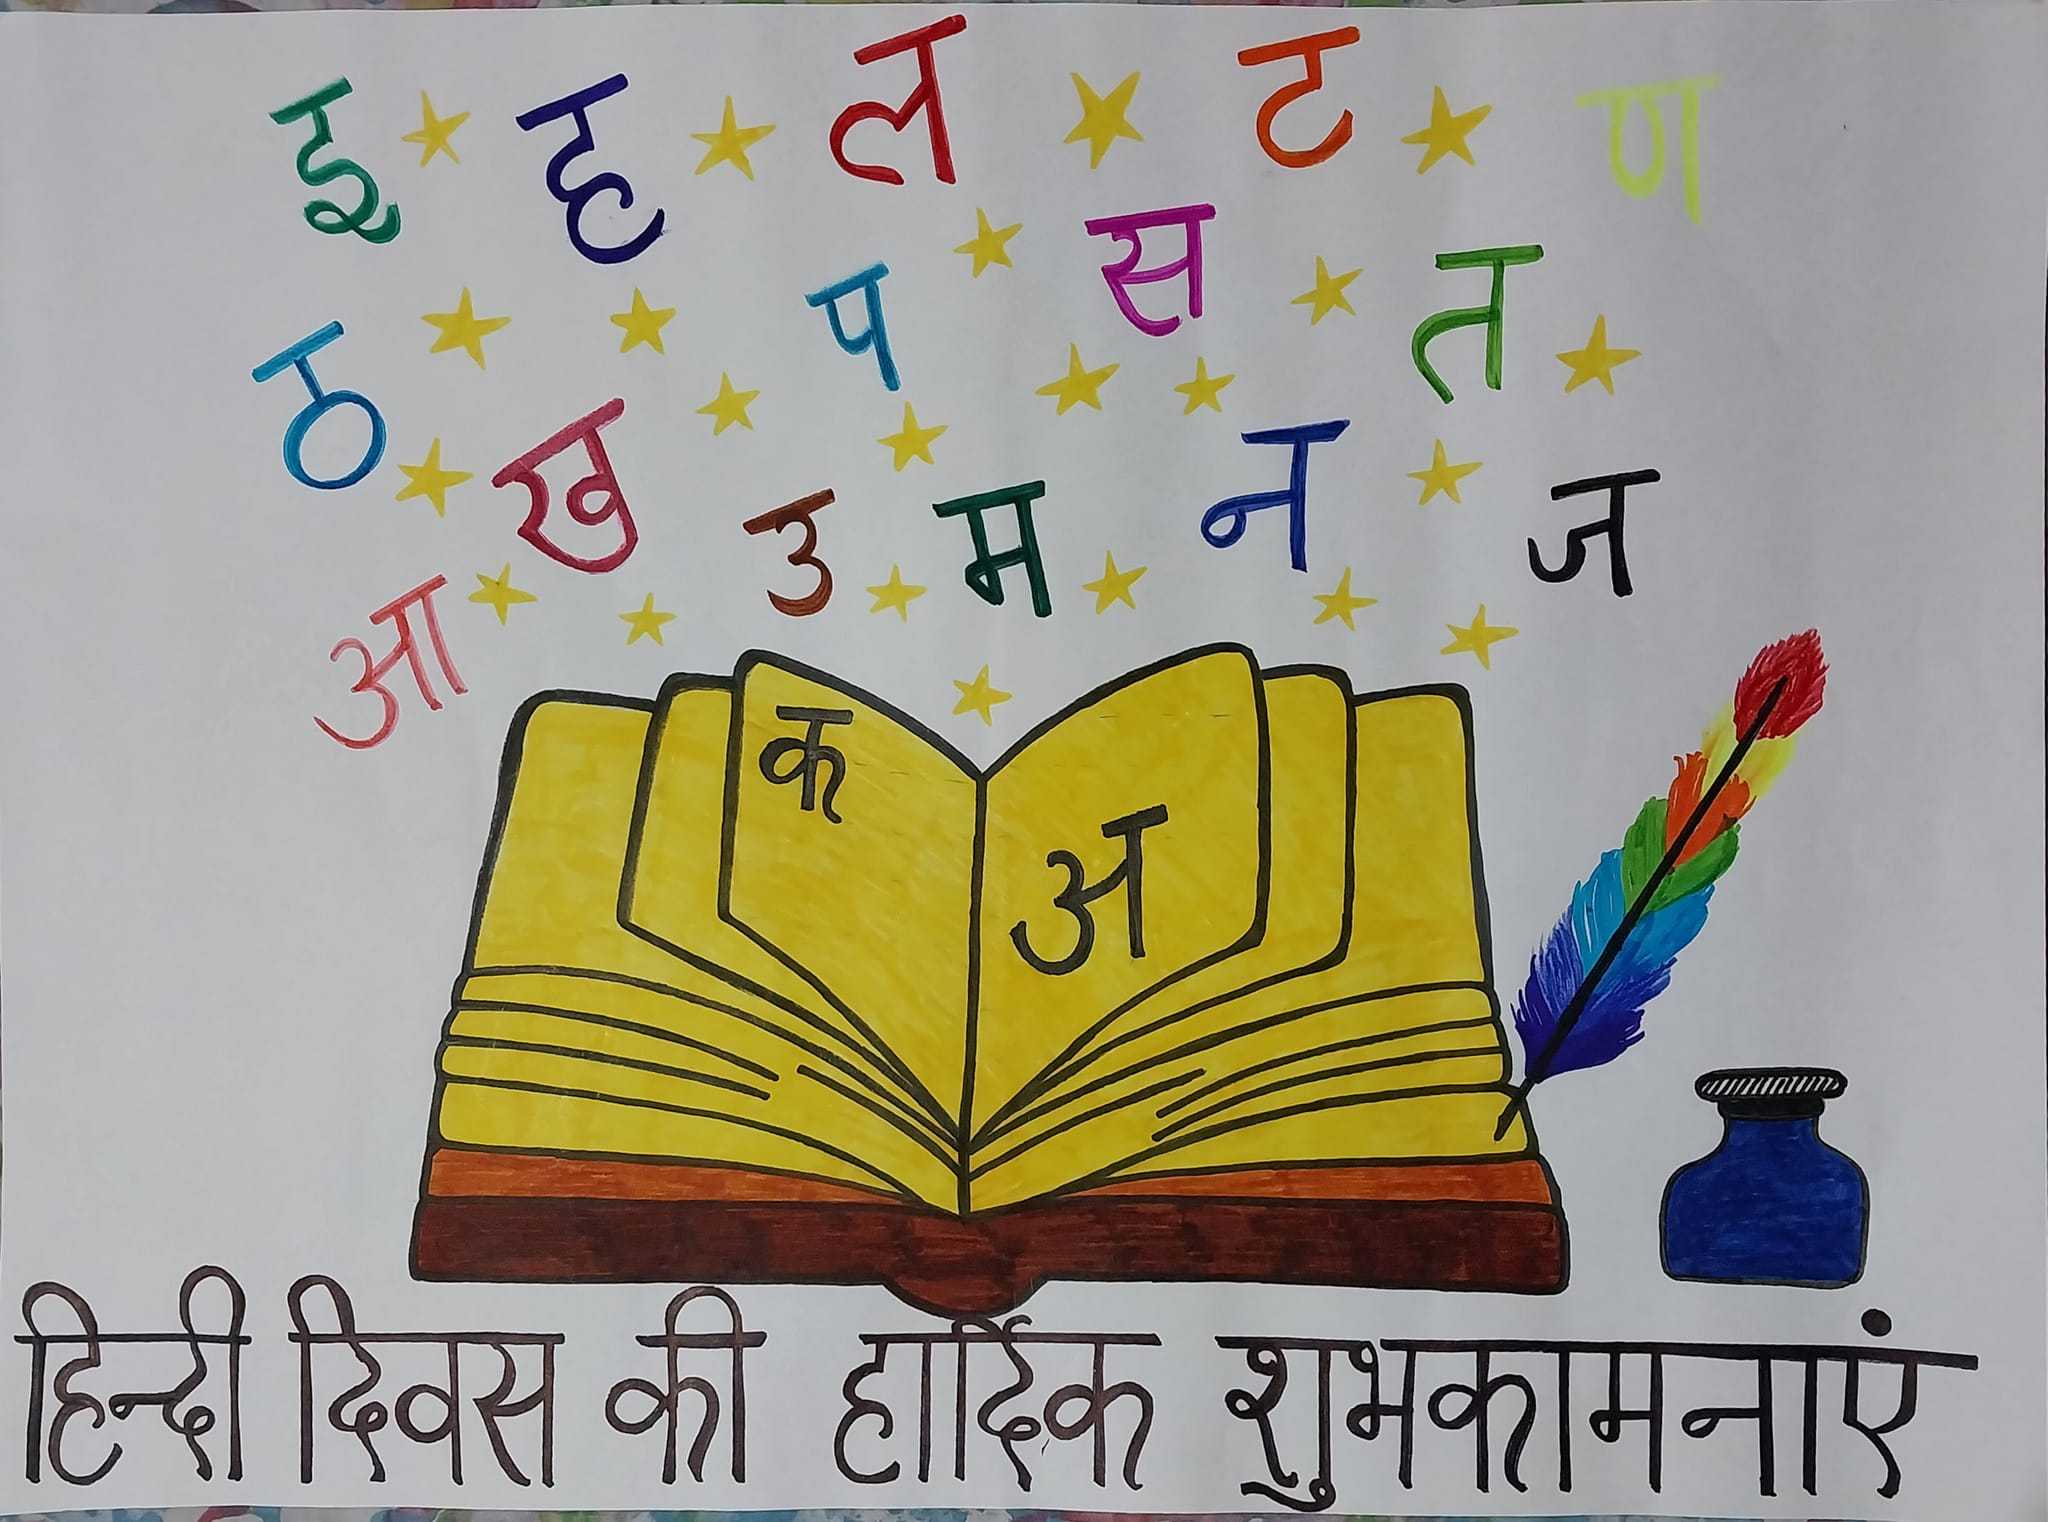 इ ह ल ट ण
ठ प स त
आ ख उ म न ज
क अ
हिन्दी दिवस की हार्दिक शुभकामनाएं